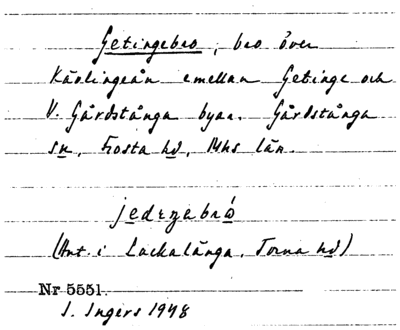 Getingebro, bro över
Kävlingeån emellan Getinge och
V. Gårdstånga byar. Gårdstånga
sn, Frosta hd, Mhs län.
(Ant. i Lackalänga, Torna hd)
Nr 5551.
I. Ingers 1948